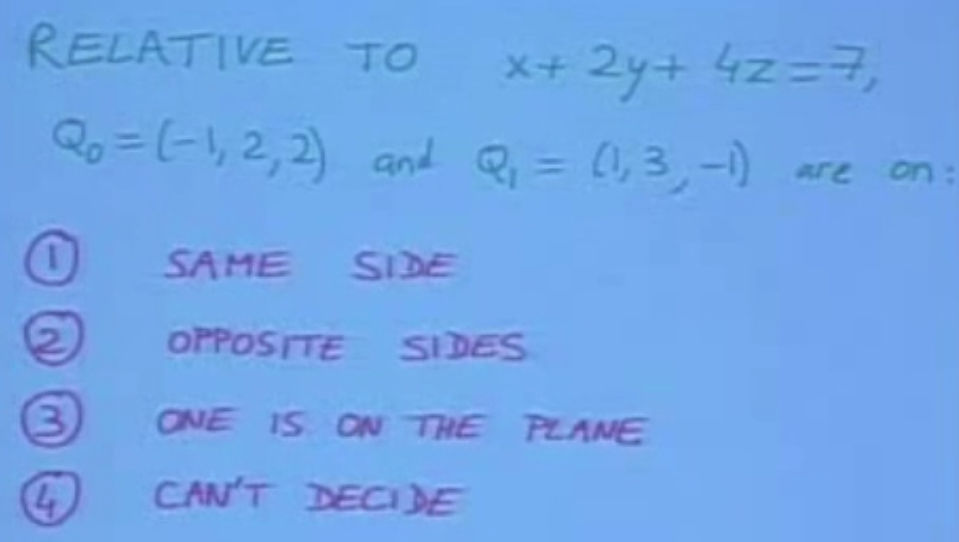 RELATIVE TO x+2y+4z=7,
Q₀=(-1,2,2) and Q₁=(1,3,-1) are on:
① SAME SIDE
② OPPOSITE SIDES
③ ONE IS ON THE PLANE
④ CAN'T DECIDE